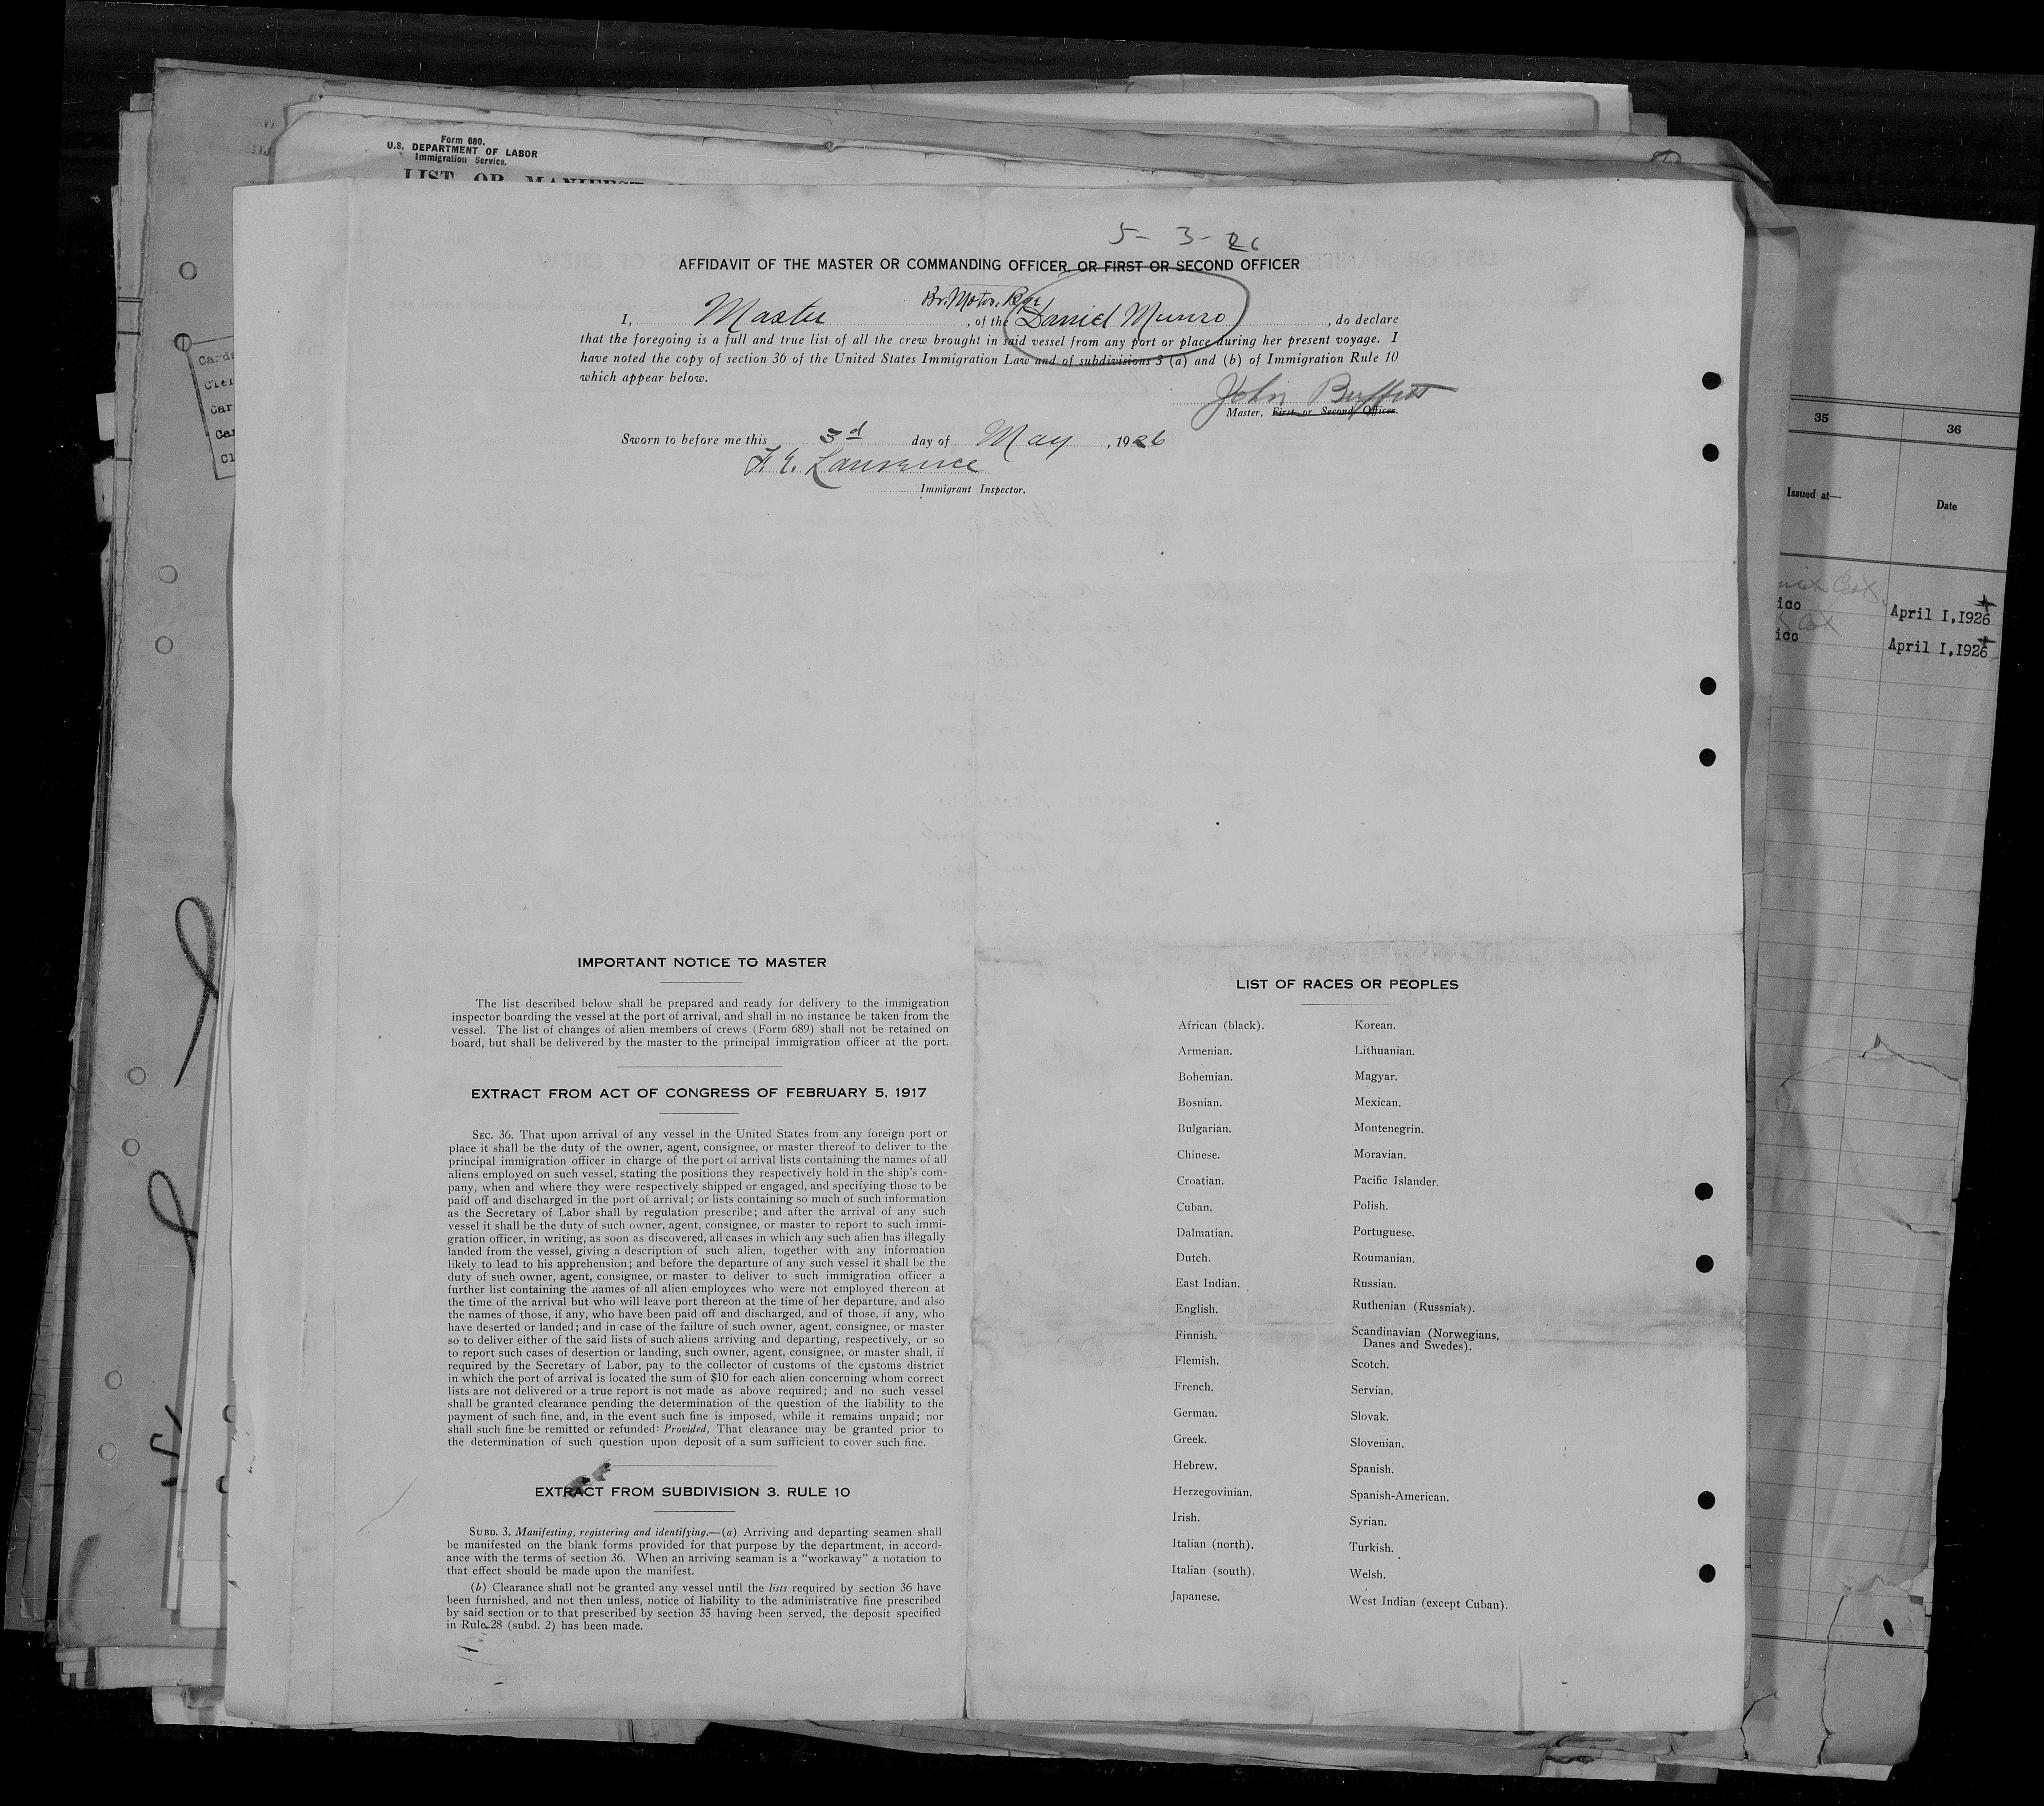 Form 680.
U.S. DEPARTMENT OF LABOR
Immigration Service.
LIST OR MANIFEST
5-3-26
AFFIDAVIT OF THE MASTER OR COMMANDING OFFICER, OR FIRST OR SECOND OFFICER
Br. Motor
I, Master, of the Daniel Munro, do declare
that the foregoing is a full and true list of all the crew brought in said vessel from any port or place during her present voyage. I
have noted the copy of section 36 of the United States Immigration Law and of subdivisions 3 (a) and (b) of Immigration Rule 10
which appear below.
John Buffett
Master, First or Second Officer.
Sworn to before me this 3d day of May, 1926
F. E. Lawrence
Immigrant Inspector.
IMPORTANT NOTICE TO MASTER
The list described below shall be prepared and ready for delivery to the immigration
inspector boarding the vessel at the port of arrival, and shall in no instance be taken from the
vessel. The list of changes of alien members of crews (Form 689) shall not be retained on
board, but shall be delivered by the master to the principal immigration officer at the port.
EXTRACT FROM ACT OF CONGRESS OF FEBRUARY 5, 1917
SEC. 36. That upon arrival of any vessel in the United States from any foreign port or
place it shall be the duty of the owner, agent, consignee, or master thereof to deliver to the
principal immigration officer in charge of the port of arrival lists containing the names of all
aliens employed on such vessel, stating the positions they respectively hold in the ship's com-
pany, when and where they were respectively shipped or engaged, and specifying those to be
paid off and discharged in the port of arrival; or lists containing so much of such information
as the Secretary of Labor shall by regulation prescribe; and after the arrival of any such
vessel it shall be the duty of such owner, agent, consignee, or master to report to such immi-
gration officer, in writing, as soon as discovered, all cases in which any such alien has illegally
landed from the vessel, giving a description of such alien, together with any information
likely to lead to his apprehension; and before the departure of any such vessel it shall be the
duty of such owner, agent, consignee, or master to deliver to such immigration officer a
further list containing the names of all alien employees who were not employed thereon at
the time of the arrival but who will leave port thereon at the time of her departure, and also
the names of those, if any, who have been paid off and discharged, and of those, if any, who
have deserted or landed; and in case of the failure of such owner, agent, consignee, or master
so to deliver either of the said lists of such aliens arriving and departing, respectively, or so
to report such cases of desertion or landing, such owner, agent, consignee, or master shall, if
required by the Secretary of Labor, pay to the collector of customs of the customs district
in which the port of arrival is located the sum of $10 for each alien concerning whom correct
lists are not delivered or a true report is not made as above required; and no such vessel
shall be granted clearance pending the determination of the question of the liability to the
payment of such fine, and, in the event such fine is imposed, while it remains unpaid; nor
shall such fine be remitted or refunded: Provided, That clearance may be granted prior to
the determination of such question upon deposit of a sum sufficient to cover such fine.
EXTRACT FROM SUBDIVISION 3. RULE 10
SUBD. 3. Manifesting, registering and identifying.—(a) Arriving and departing seamen shall
be manifested on the blank forms provided for that purpose by the department, in accord-
ance with the terms of section 36. When an arriving seaman is a "workaway" a notation to
that effect should be made upon the manifest.
(b) Clearance shall not be granted any vessel until the lists required by section 36 have
been furnished, and not then unless, notice of liability to the administrative fine prescribed
by said section or to that prescribed by section 35 having been served, the deposit specified
in Rule 28 (subd. 2) has been made.
LIST OF RACES OR PEOPLES
African (black).
Armenian.
Bohemian.
Bosnian.
Bulgarian.
Chinese.
Croatian.
Cuban.
Dalmatian.
Dutch.
East Indian.
English.
Finnish.
Flemish.
French.
German.
Greek.
Hebrew.
Herzegovinian.
Irish.
Italian (north).
Italian (south).
Japanese.
Korean.
Lithuanian.
Magyar.
Mexican.
Montenegrin.
Moravian.
Pacific Islander.
Polish.
Portuguese.
Roumanian.
Russian.
Ruthenian (Russniak).
Scandinavian (Norwegians,
Danes and Swedes).
Scotch.
Servian.
Slovak.
Slovenian.
Spanish.
Spanish-American.
Syrian.
Turkish.
Welsh.
West Indian (except Cuban).
35
36
Issued at—
Date
ico
April 1,1926
ico
April 1,1926